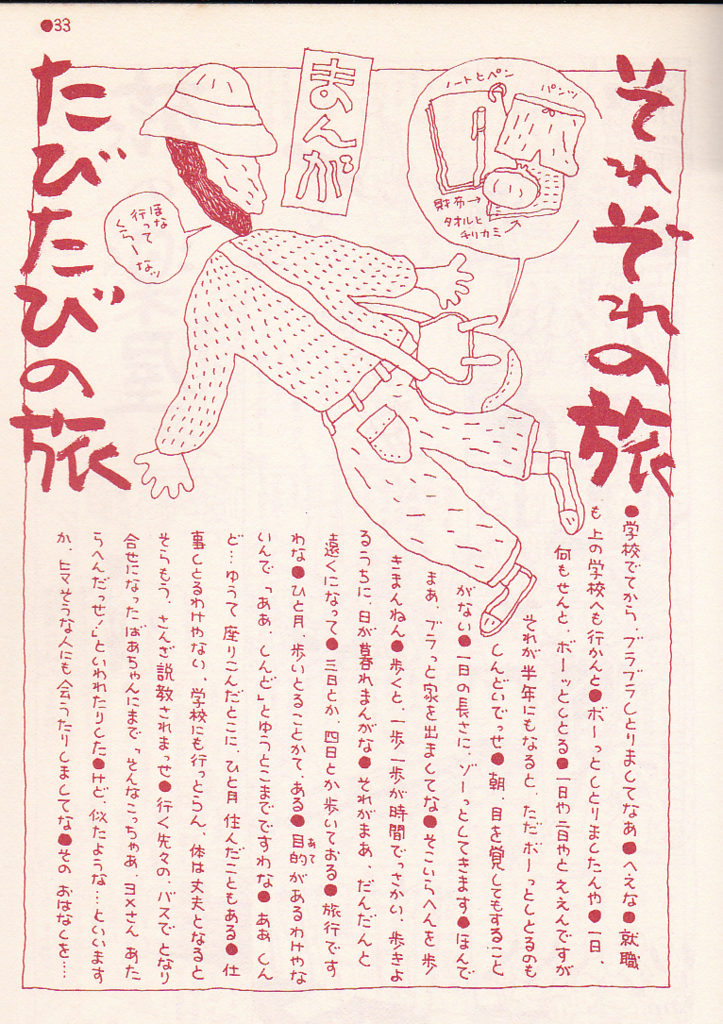 ●33
それぞれの旅
たびたびの旅
まんが
ノートとペン
パンツ
財布→
タオルと
チリカミ→
ほな
行って
くらーなッ
●学校でてから、ブラブラしとりましてなあ●へえな●就職
も上の学校へも行かんと●ボーっとしとりましたんや●一日、
何もせんと、ボーッとしとる●一日や二日やと ええんですが
それが半年にもなると、ただボーっとしとるのも
しんどいでっせ●朝、目を覚してもすること
がない●一日の長さに、ゾーっとしてきます●ほんで
まあ、ブラっと家を出ましてな●そこいらへんを歩
きまんねん●歩くと、一歩一歩が時間でっさかい、歩きよ
るうちに、日が暮れまんがな●それがまあ、だんだんと
遠くになって●三日とか、四日とか歩いておる●旅行です
わな●ひと月、歩いとることかて、ある●目的があるわけやな
あて
いんで「ああ、しんど」とゆうとこまでですわな●ああ しん
ど…ゆうて 座りこんだとこに、ひと月 住んだこともある●仕
事しとるわけやない、学校にも行っとらん、体は丈夫となると
そらもう、さんざ説教されまっせ●行く先々の、バスで となり
合せになったばあちゃんにまで「そんなこっちゃあ、ヨメさん あた
らへんだっせ!」といわれたりした●けど、似たような…といいます
か、ヒマそうな人にも会うたりしましてな●その おはなしを…